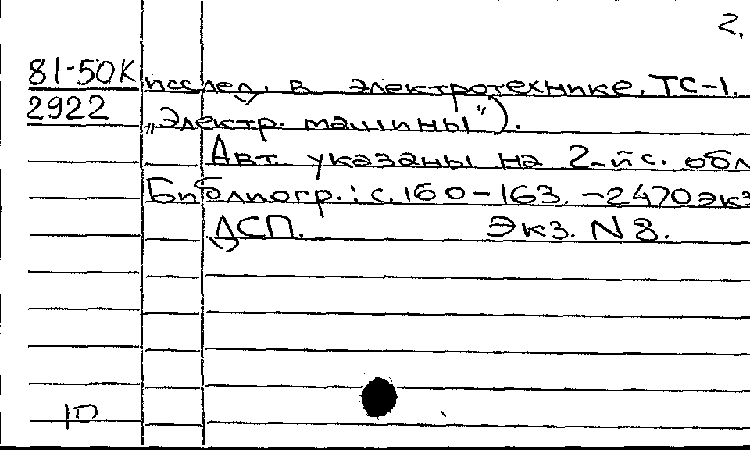 2.
81-50К исслед. в электротехнике. ТС-1.
2922 „Электр. машины").
Авт. указаны на 2-й с. обл
Библиогр.: с. 160-163. -2470 экз
ДСП. Экз. N 8.
10